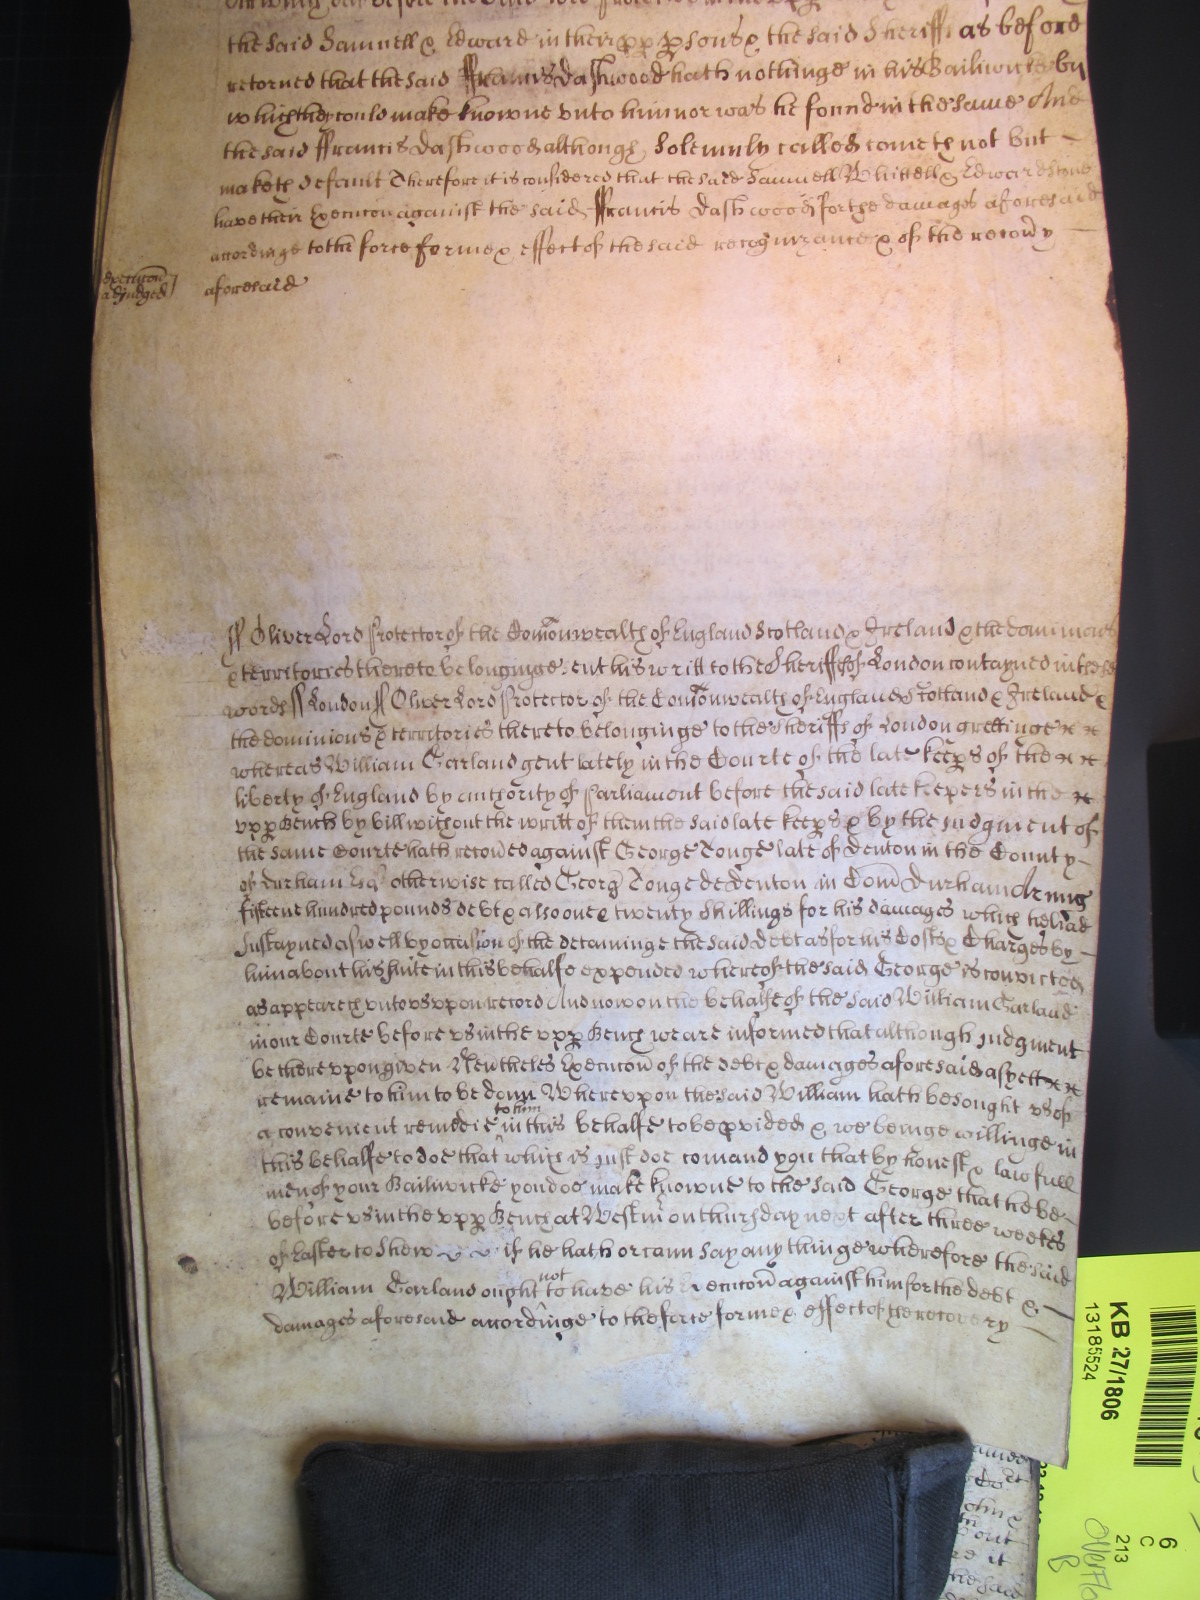 the said Samuell & Edward in their pp psons & the said Sheriffs as before
retorned that the said ffrancis Dashwood hath nothinge in his Bailiwicke by
which they could make knowne vnto him nor was he found in the same And
the said ffrancis Dashwood although Solemnly called cometh not but
maketh default Therefore it is considered that the said Samuell Whittell & Edward
have their Execucon against the said ffrancis Dashwood for the damages aforesaid
accordinge to the force forme & effect of the said recognizance & of the recovy
aforesaid
Execucon
adjudged
ss Oliver Lord Protector of the Comonwealth of England Scotland & Ireland & the dominions
& territories thereto belonginge sent his writt to the Sheriffs of London contayned in these
words ss London ss Oliver Lord Protector of the Comonwealth of England Scotland & Ireland &
the dominions & territories thereto belonginge to the Sheriffs of London greetinge
whereas William Garland gent lately in the Courte of the late keeps of the
liberty of England by authority of Parliament before the said late keepers in the
vpp Bench by bill without the writt of them the said late keeps & by the Judgment of
the same Courte hath recoved against George Tonge late of Denton in the County
of Durham Esq otherwise called Georg Tonge de Denton in Com Durham Armig
fifteene hundred pounds debt & also one & twenty Shillings for his damages which he had
Sustayned aswell by occasion of the detaininge the said debt as for his Costs & Charges by
him about his suite in this behalfe expended whereof the said George is convicted
as appeareth vnto vs vpon record And now on the behalfe of the said William Garland
in our Courte before vs in the vpp Bench we are informed that although Judgment
be therevpon given Neutheles Execucon of the debt & damages aforesaid as yett
remaine to him to be donn Wherevpon the said William hath besought vs of
a convenient remedie to him in this behalfe to be pvided & we beinge willinge in
this behalfe to doe that which is just doe comand you that by honest & lawfull
men of your Bailiwicke you doe make knowne to the said George that he be
before vs in the vpp Bench at Westm on thursday next after three weekes
of Easter to shew if he hath or cann say any thinge wherefore the said
William Garland ought not to have his Execucon against him for the debt &
damages aforesaid accordinge to the force forme & effect of the recovery
KB 27/1806
13185524
6
C
213